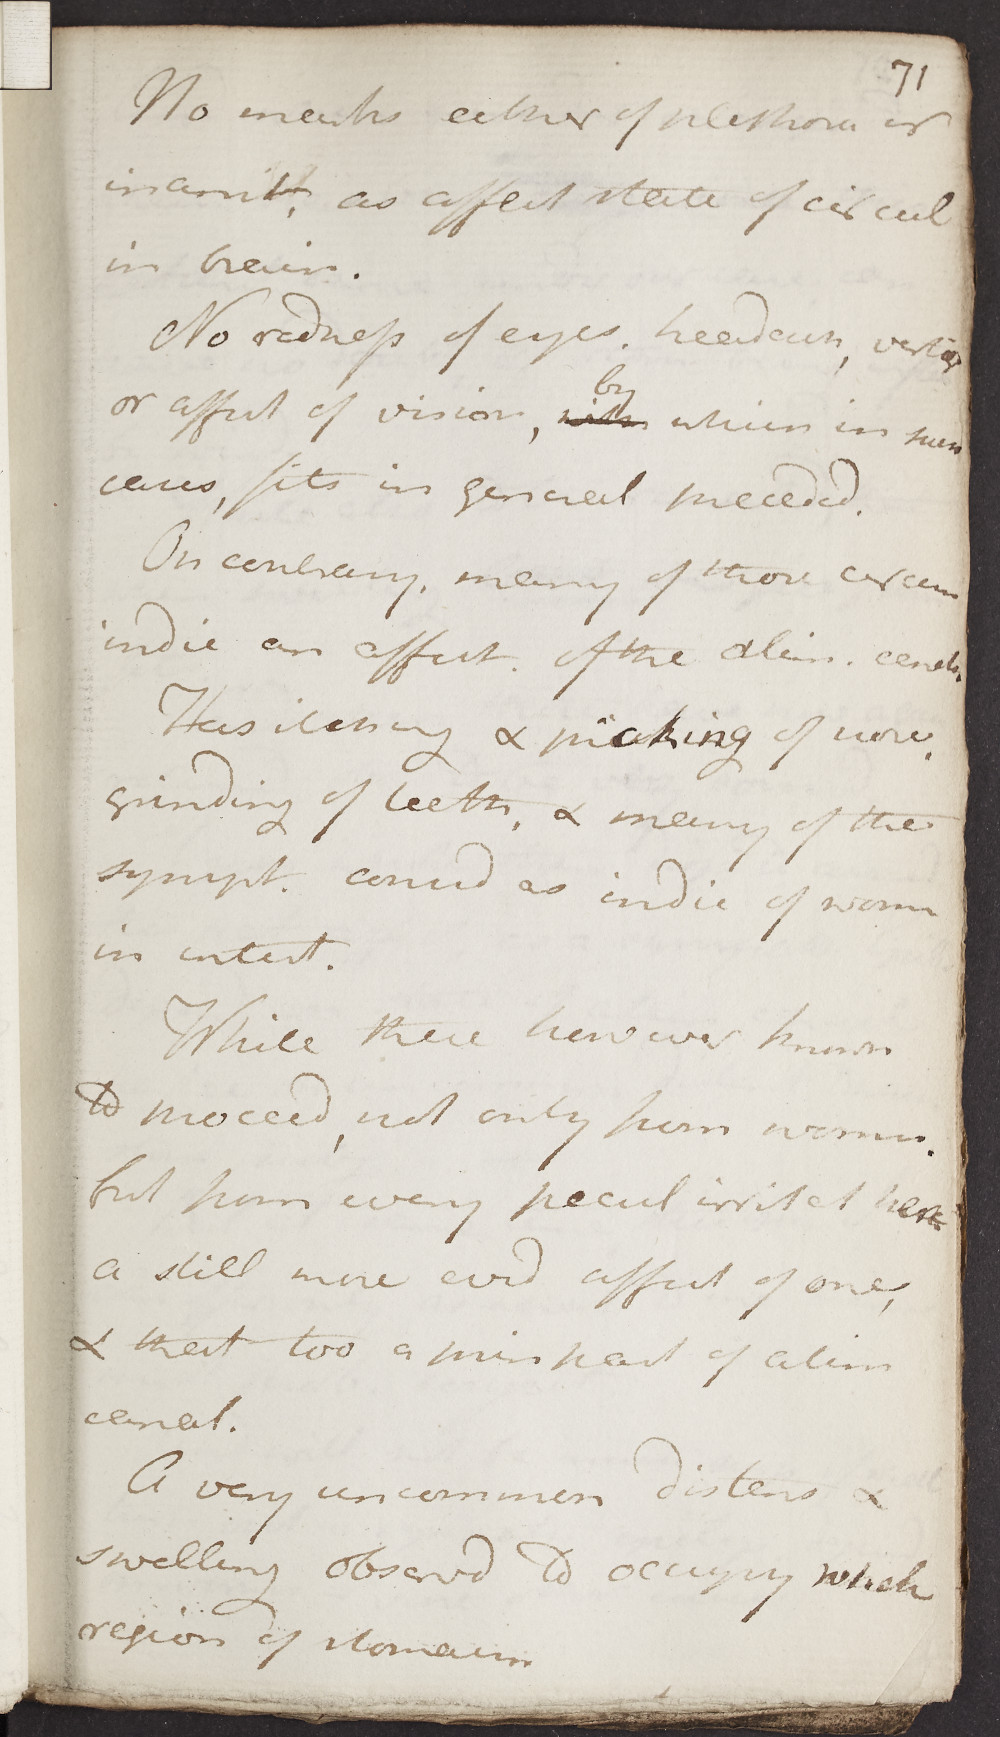 71
No marks either of plethora or
inanit, as affect state of circul
in brain.
No redness of eyes, headach, vertig
or affect of vision, with by which in such
cases, fits in general preceded.
On contrary, many of those circum
indic an affect. of the alim. canal.
Has itching & picking of nose,
grinding of teeth, & many of the
sympt. consid as indic of worm
in intest.
While these however known
to proceed, not only from worms,
but from every pecul irritat here
a still more evid affect of one,
& that too a prin part of alim
canal.
A very uncommon distens &
swelling observd to occupy whole
region of stomach